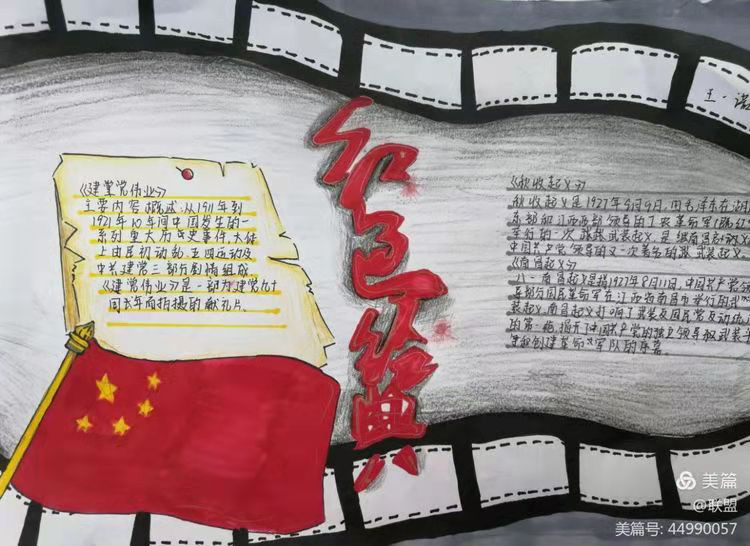 《建党伟业》
主要内容概述:从1911年到
1921年10年间中国发生的一
系列重大历史事件,大体
上由民初动乱,五四运动及
中共建党三部分剧情组成
《建党伟业》是一部为建党九十
周年而拍摄的献礼片。
红色经典
《秋收起义》
秋收起义是1927年9月9日,由毛泽东在湖
东部和江西西部领导的工农革命军
举行的一次武装起义,是继南昌起义
中国共产党领导的又一次著名的武装起义
《南昌起义》
八一南昌起义是指1927年8月1日,中国共产党
导部分国民革命军在江西省南昌市举行的武
装起义,南昌起义打响了武装反国民党反动
的第一枪,揭开了中国共产党的独立领导武装
争和创建革命军队的序幕。
王一诺
美篇
@联盟
美篇号: 44990057